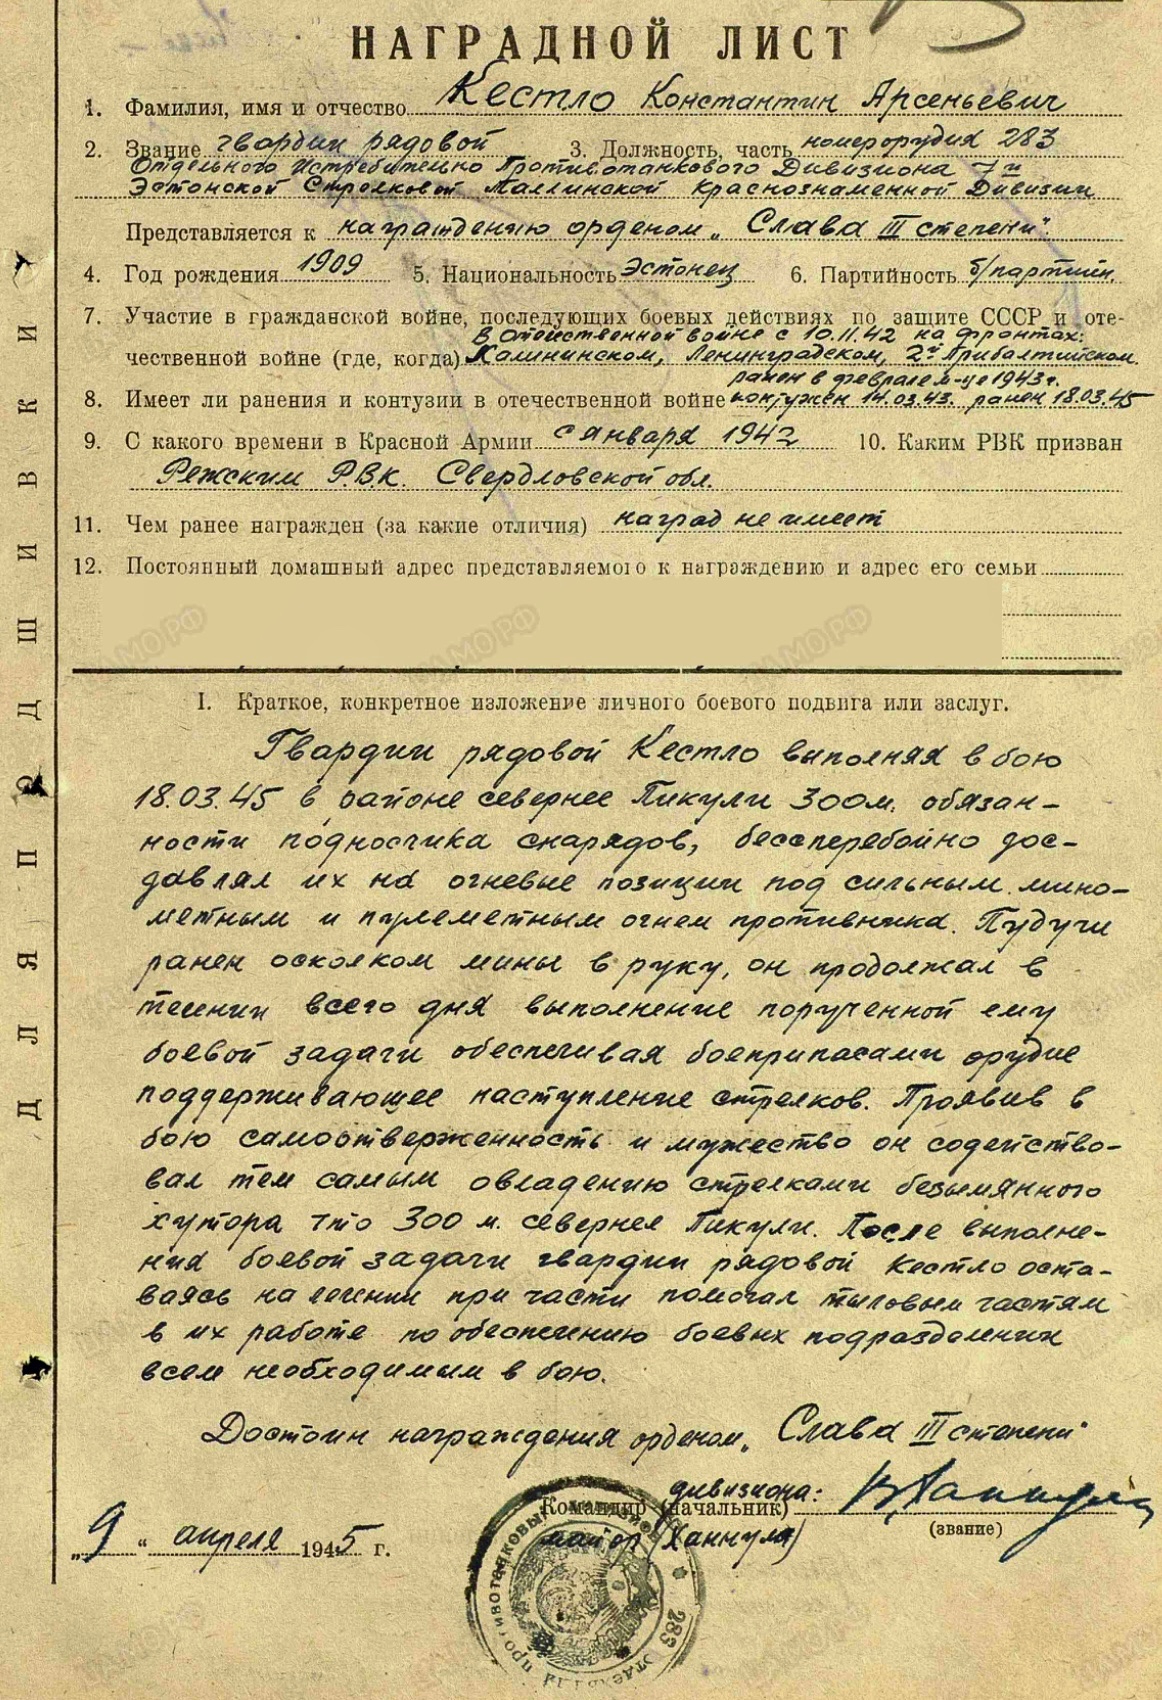 НАГРАДНОЙ ЛИСТ
1. Фамилия, имя и отчество Кестло Константин Арсеньевич
2. Звание гвардии рядовой 3. Должность, часть номер орудия 283
Отдельного Истребительно Противотанкового Дивизиона 7й
Эстонской Стрелковой Таллинской Краснознаменной Дивизии
Представляется к награждению орденом „Слава III степени".
4. Год рождения 1909 5. Национальность Эстонец 6. Партийность б/партийн.
7. Участие в гражданской войне, последующих боевых действиях по защите СССР и оте-
В Отечественной войне с 10.11.42 на фронтах:
чественной войне (где, когда) Калининском, Ленинградском, 2й Прибалтийском
ранен в феврале м-це 1943 г.
8. Имеет ли ранения и контузии в отечественной войне контужен 14.03.43. ранен 18.03.45
9. С какого времени в Красной Армии с января 1942 10. Каким РВК призван
Режским Р.В.К. Свердловской обл.
11. Чем ранее награжден (за какие отличия) наград не имеет
12. Постоянный домашный адрес представляемого к награждению и адрес его семьи
I. Краткое, конкретное изложение личного боевого подвига или заслуг.
Гвардии рядовой Кестло выполняя в бою
18.03.45 в районе севернее Пикули 300 м. обязан-
ности подносчика снарядов, бессперебойно дос-
давлял их на огневые позиции под сильным мино-
метным и пулеметным огнем противника. Пудучи
ранен осколком мины в руку, он продолжал в
течении всего дня выполнение порученной ему
боевой задачи обеспечивая боеприпасами орудие
поддерживающее наступление стрелков. Проявив в
бою самоотверженность и мужество он содейство-
вал тем самым овладению стрелками безымянного
хутора что 300 м. севернее Пикули. После выполне-
ния боевой задачи гвардии рядовой Кестло оста-
ваясь на лечении при части помогал тыловым частям
в их работе по обеспечению боевых подразделении
всем необходимым в бою.
Достоин награждения орденом „Слава III степени"
дивизиона:
Командир (начальник)
(звание)
майор (Ханнула)
„9" апреля 1945 г.
ДЛЯ ПОДШИВКИ